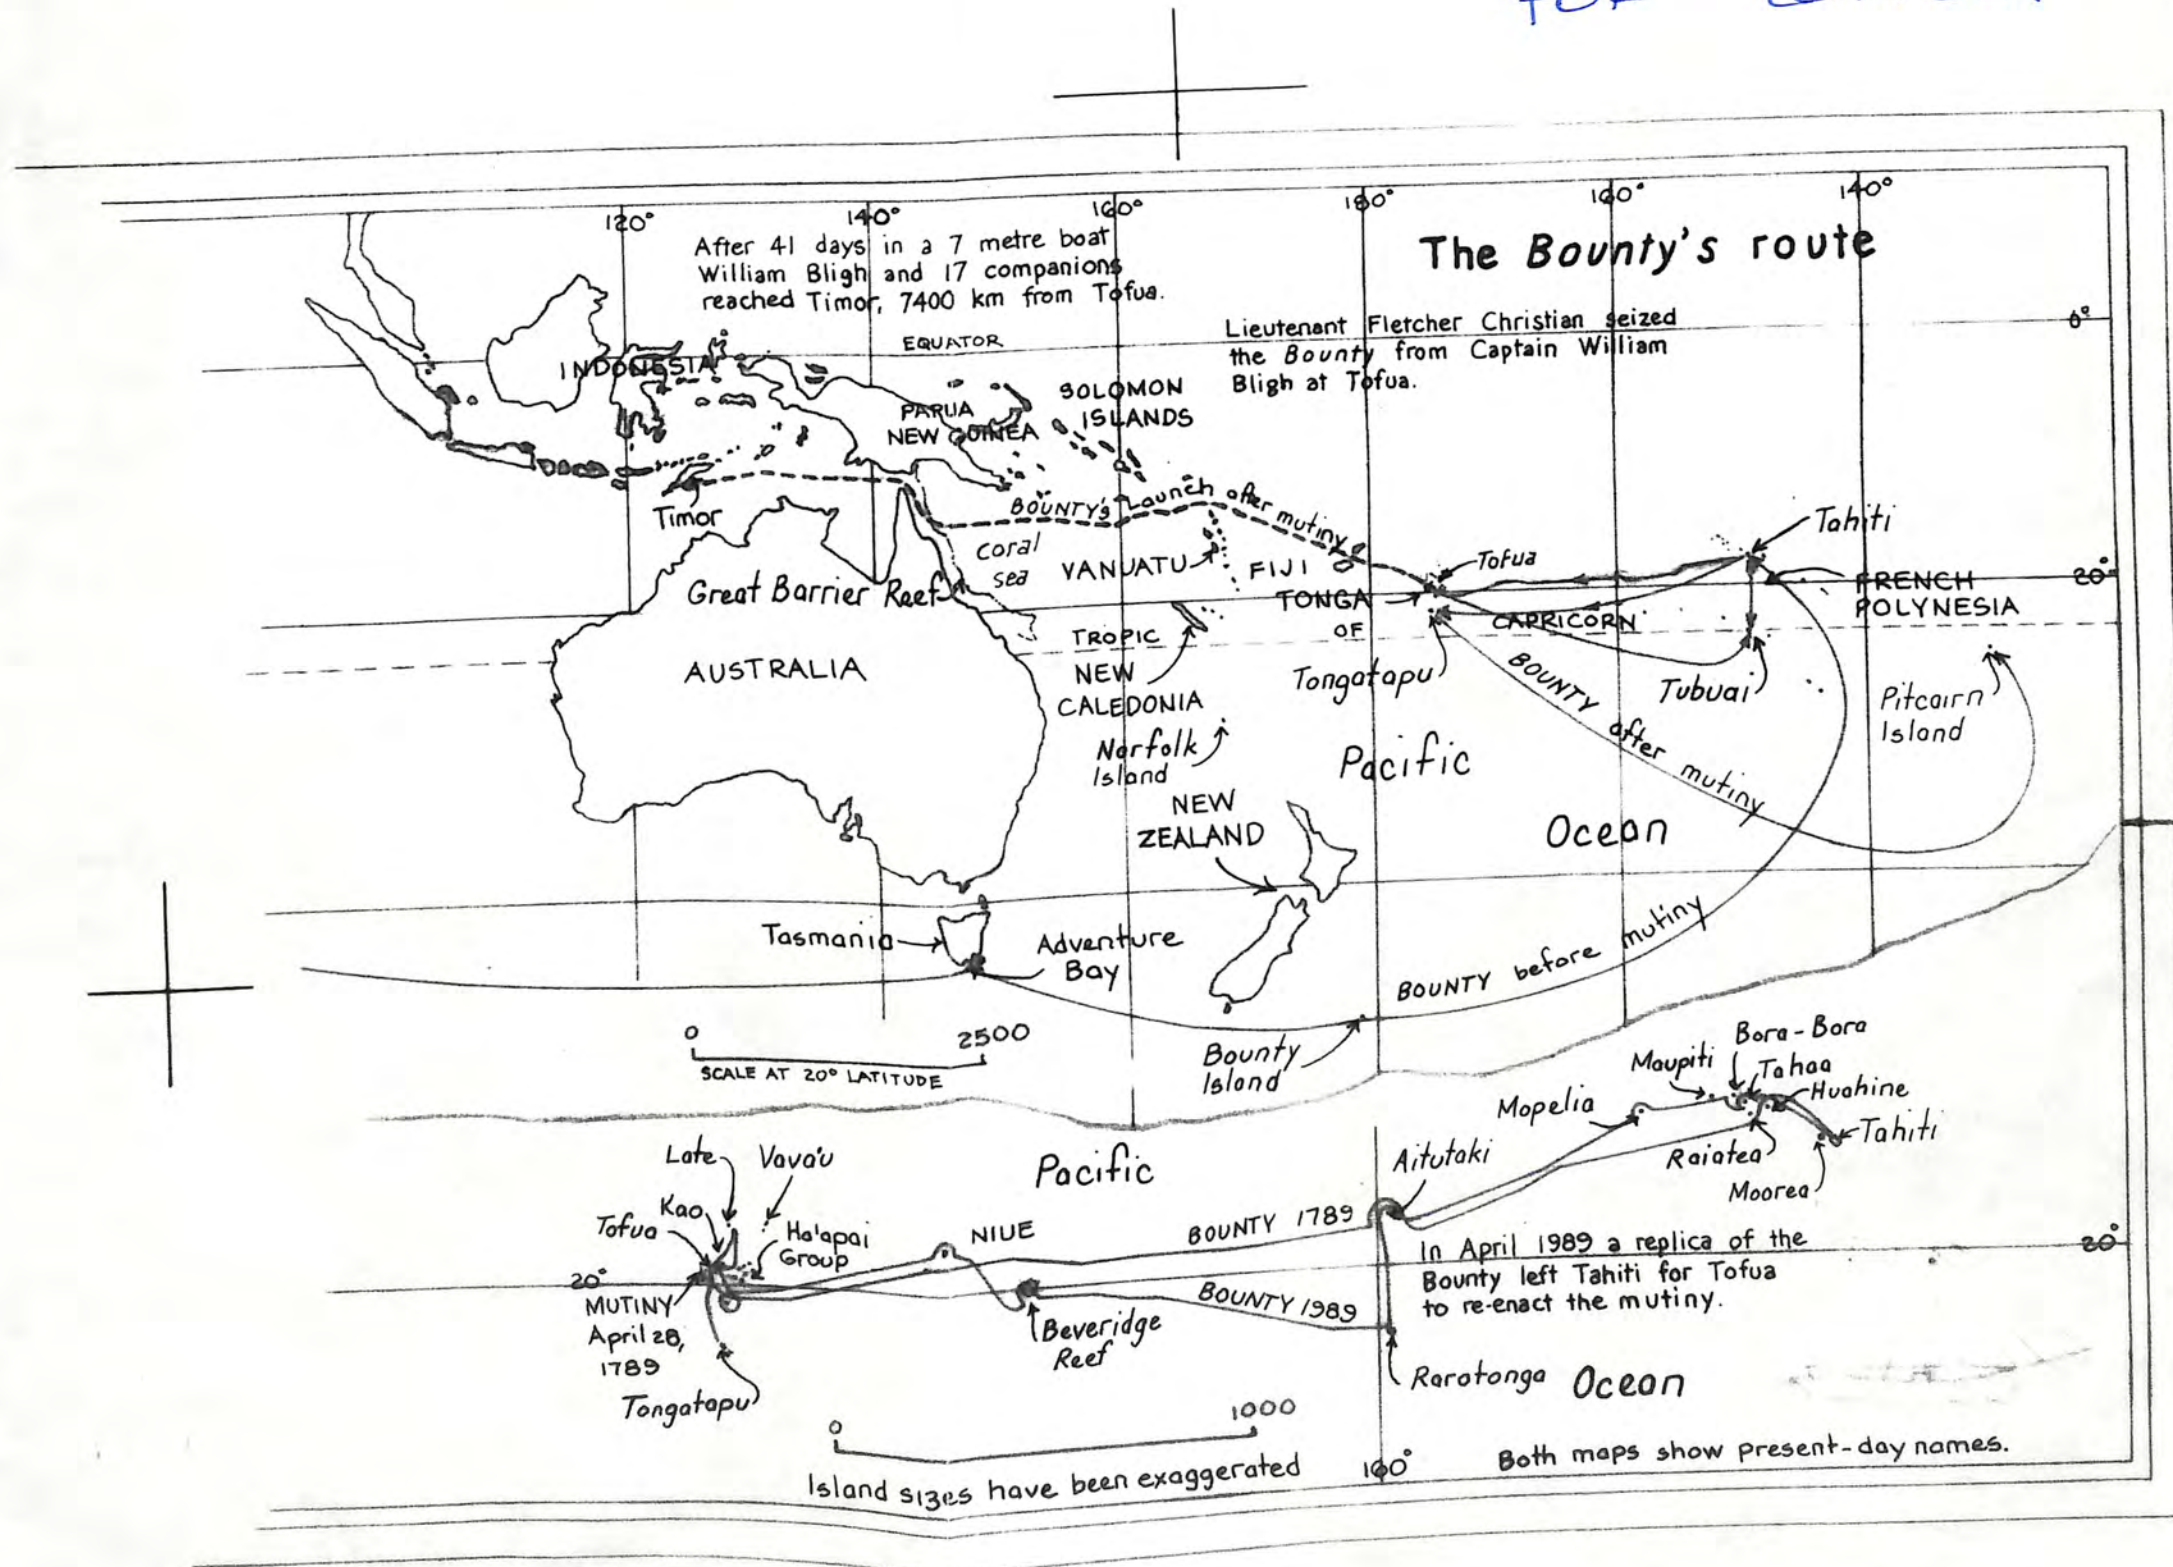 120°
140°
160°
180°
160°
140°
After 41 days in a 7 metre boat
William Bligh and 17 companions
reached Timor, 7400 km from Tofua.
The Bounty's route
Lieutenant Fletcher Christian seized
the Bounty from Captain William
Bligh at Tofua.
EQUATOR
0°
INDONESIA
PAPUA
NEW GUINEA
SOLOMON
ISLANDS
Timor
BOUNTY's Launch after mutiny
Coral
sea
VANUATU
FIJI
Tofua
Tahiti
Great Barrier Reef
TONGA
20°
FRENCH
POLYNESIA
TROPIC OF CAPRICORN
AUSTRALIA
NEW
CALEDONIA
Tongatapu
Tubuai
Pitcairn
Island
BOUNTY after mutiny
Norfolk
Island
Pacific
Ocean
NEW
ZEALAND
Tasmania
Adventure
Bay
BOUNTY before mutiny
0 2500
SCALE AT 20° LATITUDE
Bounty
Island
Bora-Bora
Maupiti
Tahaa
Huahine
Mopelia
Tahiti
Raiatea
Moorea
Aitutaki
Late
Vava'u
Pacific
Kao
Tofua
Ha'apai
Group
NIUE
BOUNTY 1789
20°
20°
MUTINY
April 28,
1789
BOUNTY 1989
In April 1989 a replica of the
Bounty left Tahiti for Tofua
to re-enact the mutiny.
Beveridge
Reef
Tongatapu
Rarotonga
Ocean
0 1000
Island sizes have been exaggerated
160°
Both maps show present-day names.